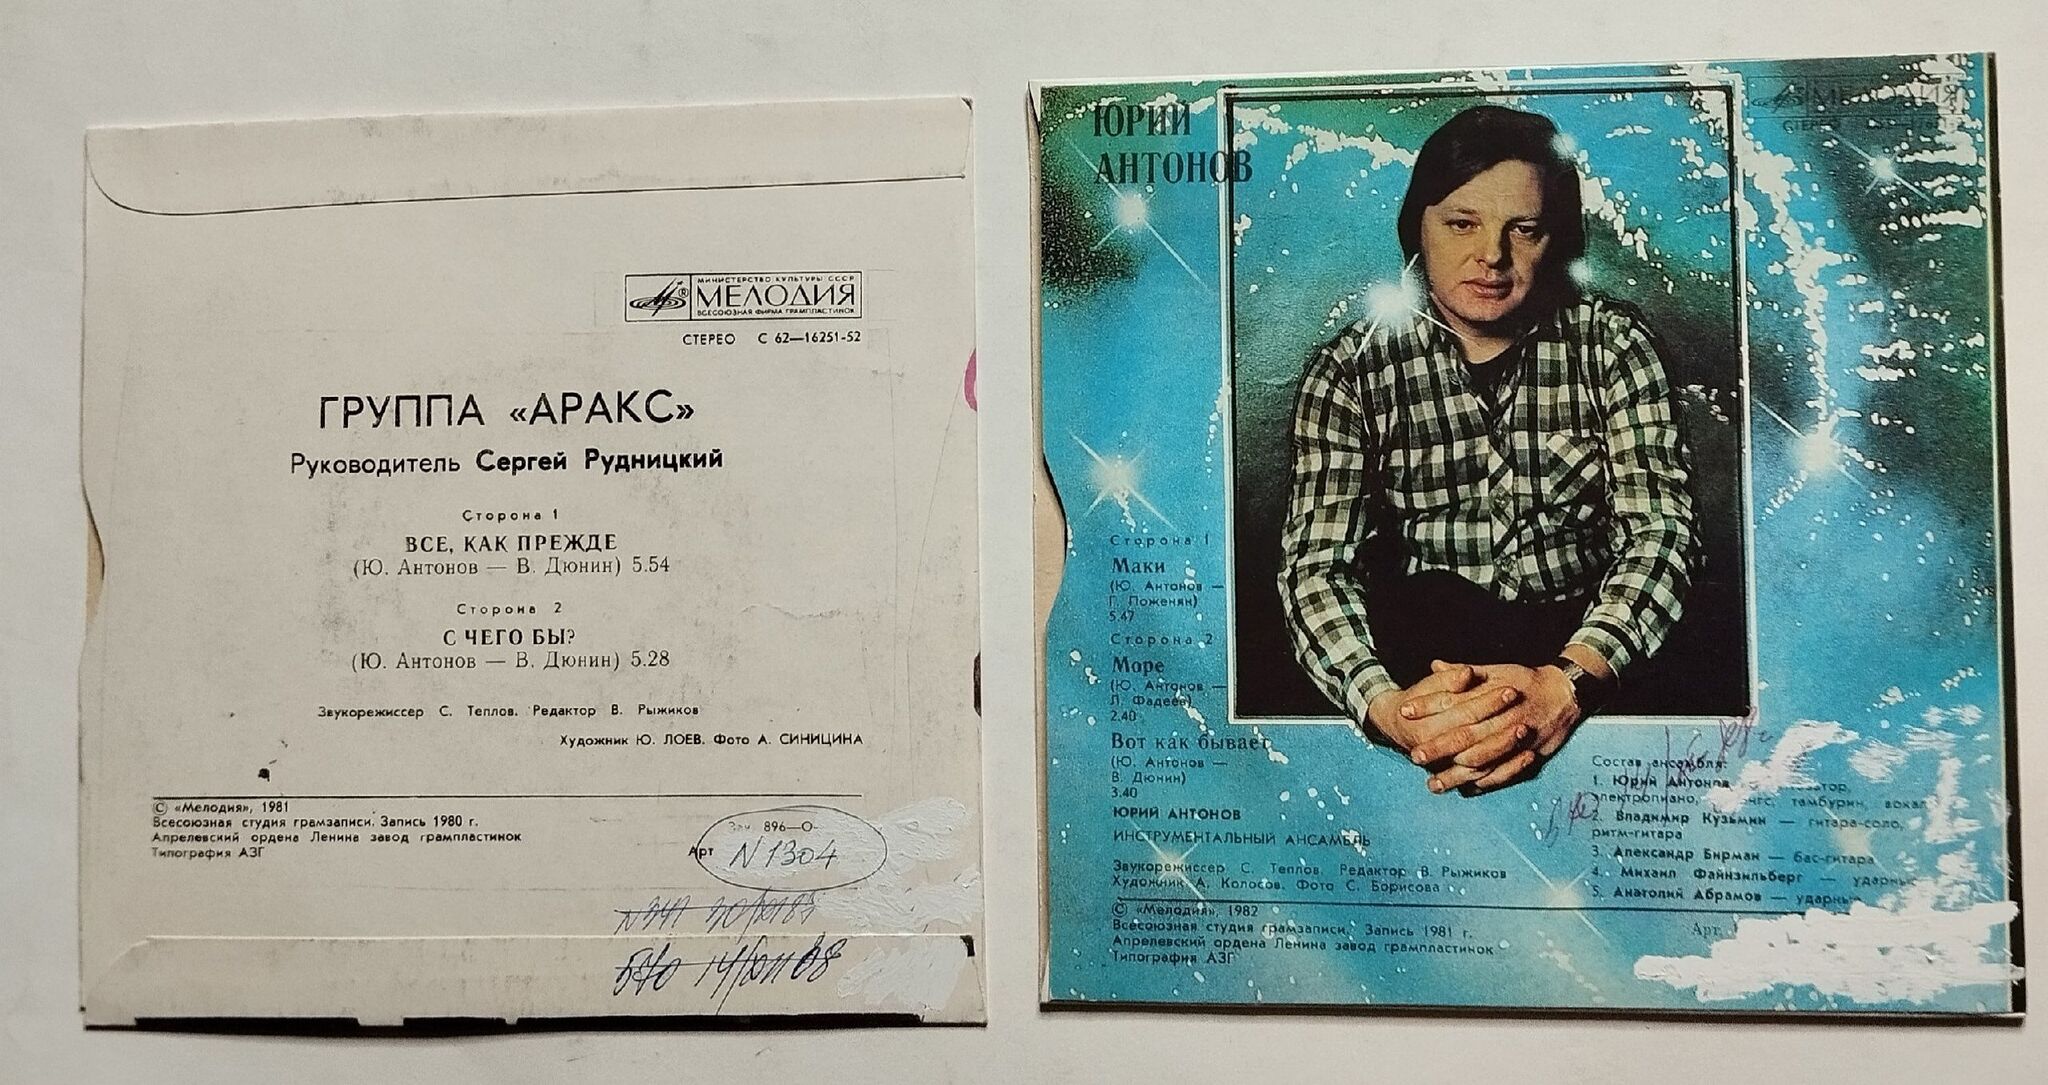 МИНИСТЕРСТВО КУЛЬТУРЫ СССР
МЕЛОДИЯ
ВСЕСОЮЗНАЯ ФИРМА ГРАМПЛАСТИНОК
СТЕРЕО С 62—16251-52
ГРУППА «АРАКС»
Руководитель Сергей Рудницкий
Сторона 1
ВСЕ, КАК ПРЕЖДЕ
(Ю. Антонов — В. Дюнин) 5.54
Сторона 2
С ЧЕГО БЫ?
(Ю. Антонов — В. Дюнин) 5.28
Звукорежиссер С. Теплов. Редактор В. Рыжиков
Художник Ю. ЛОЕВ. Фото А. СИНИЦИНА
© «Мелодия», 1981
Всесоюзная студия грамзаписи. Запись 1980 г.
Апрелевский ордена Ленина завод грампластинок
Типография АЗГ
Зак. 896—О-
Арт N 1304
ЮРИЙ
АНТОНОВ
МЕЛОДИЯ
СТЕРЕО
Сторона 1
Маки
(Ю. Антонов —
Г. Поженян)
5.47
Сторона 2
Море
(Ю. Антонов —
Л. Фадеев)
2.40
Вот как бывает
(Ю. Антонов —
В. Дюнин)
3.40
ЮРИЙ АНТОНОВ
ИНСТРУМЕНТАЛЬНЫЙ АНСАМБЛЬ
Звукорежиссер С. Теплов. Редактор В. Рыжиков
Художник А. Колосов. Фото С. Борисова
© «Мелодия», 1982
Всесоюзная студия грамзаписи. Запись 1981 г.
Апрелевский ордена Ленина завод грампластинок
Типография АЗГ
Состав ансамбля:
1. Юрий Антонов —
электропиано, тамбурин, вокал
2. Владимир Кузьмин — гитара-соло,
ритм-гитара
3. Александр Бирман — бас-гитара
4. Михаил Файнзильберг — ударные
5. Анатолий Абрамов — ударные
Арт.